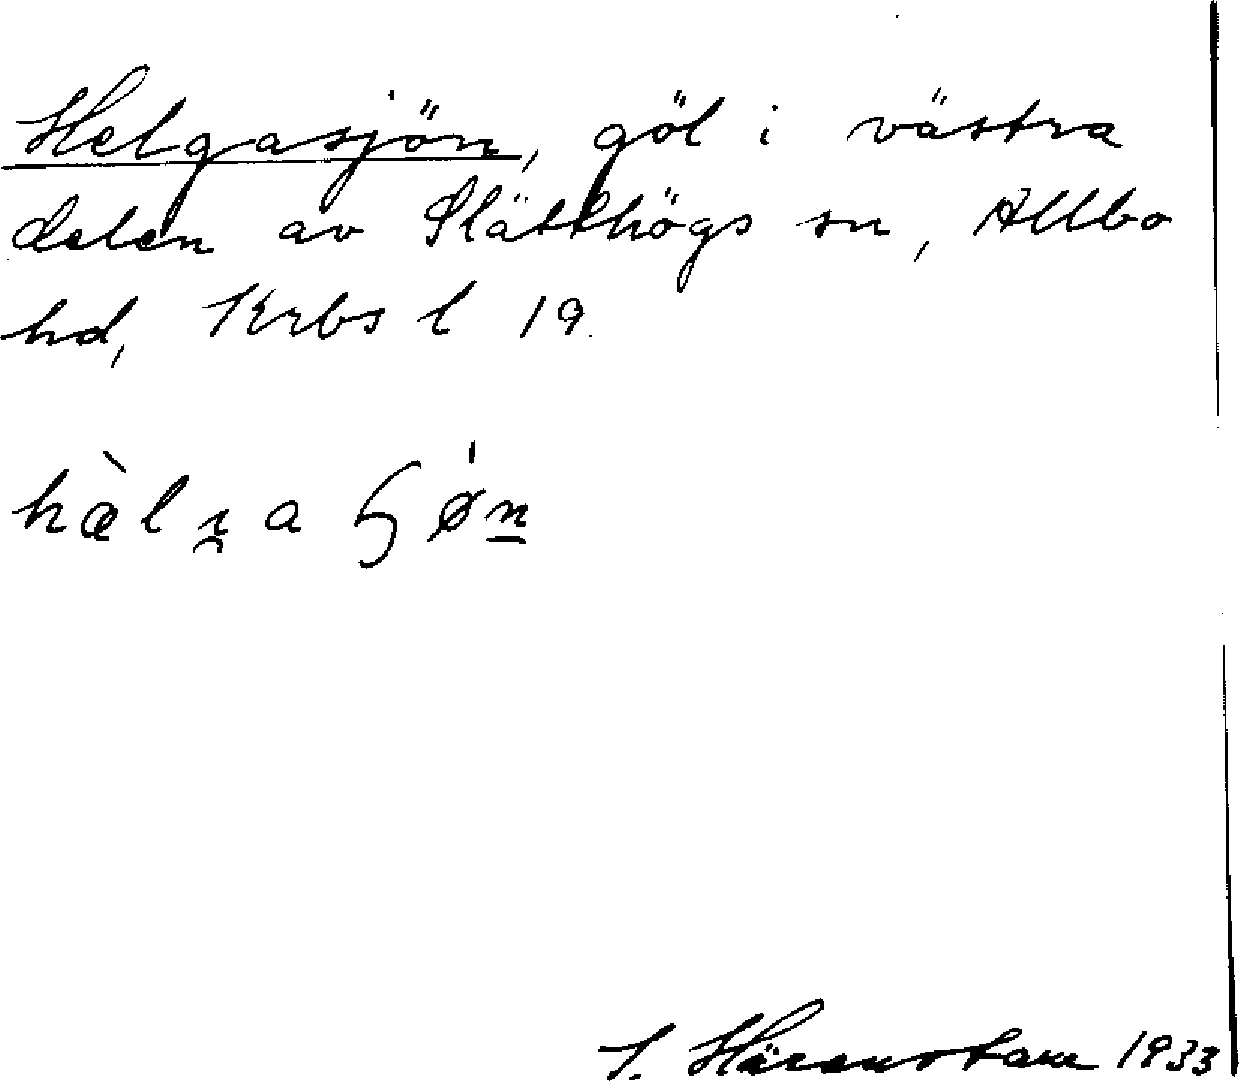 Helgasjön, göl i västra
delen av Slätthögs sn, Allbo
hd, Krbs l 19.
hæ̀lɿ̯aɧǿn̲
S. Härenstam 1933